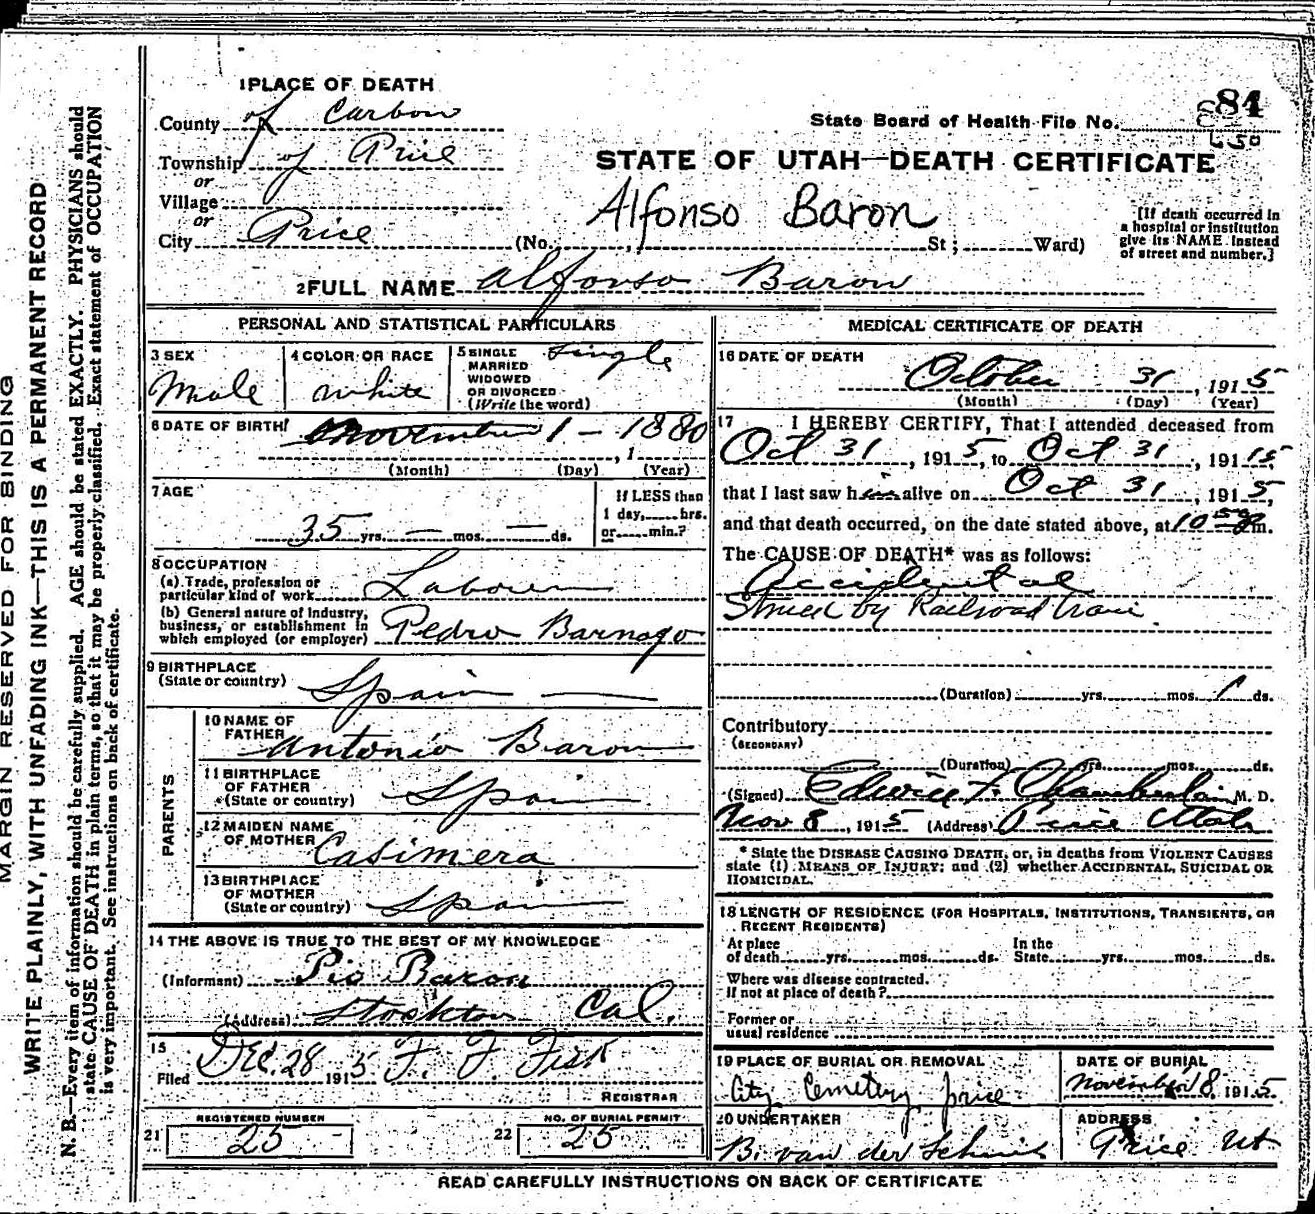 1 PLACE OF DEATH
County of Carbon
State Board of Health File No. 84
Township of Price
or
Village
or
City Price
STATE OF UTAH—DEATH CERTIFICATE
Alfonso Baron
(No. St; Ward)
[If death occurred in a hospital or institution give its NAME instead of street and number.]
2 FULL NAME Alfonso Baron
PERSONAL AND STATISTICAL PARTICULARS
3 SEX
Male
4 COLOR OR RACE
white
5 SINGLE
MARRIED
WIDOWED
OR DIVORCED
(Write the word)
Single
6 DATE OF BIRTH
November 1 - 1880
, 1
(Month) (Day) (Year)
7 AGE
35 yrs. — mos. — ds.
If LESS than
1 day, hrs.
or min.?
8 OCCUPATION
(a) Trade, profession or
particular kind of work Laborer
(b) General nature of industry,
business, or establishment in
which employed (or employer) Pedro Barnago
9 BIRTHPLACE
(State or country) Spain
PARENTS
10 NAME OF
FATHER Antonio Baron
11 BIRTHPLACE
OF FATHER
(State or country) Spain
12 MAIDEN NAME
OF MOTHER Casimera
13 BIRTHPLACE
OF MOTHER
(State or country) Spain
14 THE ABOVE IS TRUE TO THE BEST OF MY KNOWLEDGE
(Informant) Pio Baron
(Address) Stockton Cal.
15
Filed Dec. 28 1915 F. F. Fisk
REGISTRAR
21 REGISTERED NUMBER
25
22 NO. OF BURIAL PERMIT
25
MEDICAL CERTIFICATE OF DEATH
16 DATE OF DEATH
October 31, 1915
(Month) (Day) (Year)
17 I HEREBY CERTIFY, That I attended deceased from
Oct 31, 1915, to Oct 31, 19115,
that I last saw him alive on Oct 31, 1915,
and that death occurred, on the date stated above, at 10 m.
The CAUSE OF DEATH* was as follows:
Accidental
Struck by Railroad train
(Duration) yrs. mos. 1 ds.
Contributory
(SECONDARY)
(Duration) yrs. mos. ds.
(Signed) Edwin F. Chamberlain M. D.
Nov 8, 1915 (Address) Price Utah
* State the DISEASE CAUSING DEATH, or, in deaths from VIOLENT CAUSES
state (1) MEANS OF INJURY; and (2) whether ACCIDENTAL, SUICIDAL OR
HOMICIDAL.
18 LENGTH OF RESIDENCE (FOR HOSPITALS, INSTITUTIONS, TRANSIENTS, OR
RECENT RESIDENTS)
At place
of death yrs. mos. ds.
In the
State yrs. mos. ds.
Where was disease contracted,
If not at place of death?
Former or
usual residence
19 PLACE OF BURIAL OR REMOVAL
City Cemetery Price
DATE OF BURIAL
November 8 1915
20 UNDERTAKER
B. van der Schuit
ADDRESS
Price Ut
READ CAREFULLY INSTRUCTIONS ON BACK OF CERTIFICATE
MARGIN RESERVED FOR BINDING
WRITE PLAINLY, WITH UNFADING INK—THIS IS A PERMANENT RECORD
N. B.—Every item of information should be carefully supplied. AGE should be stated EXACTLY. PHYSICIANS should
state CAUSE OF DEATH in plain terms, so that it may be properly classified. Exact statement of OCCUPATION
is very important. See instructions on back of certificate.